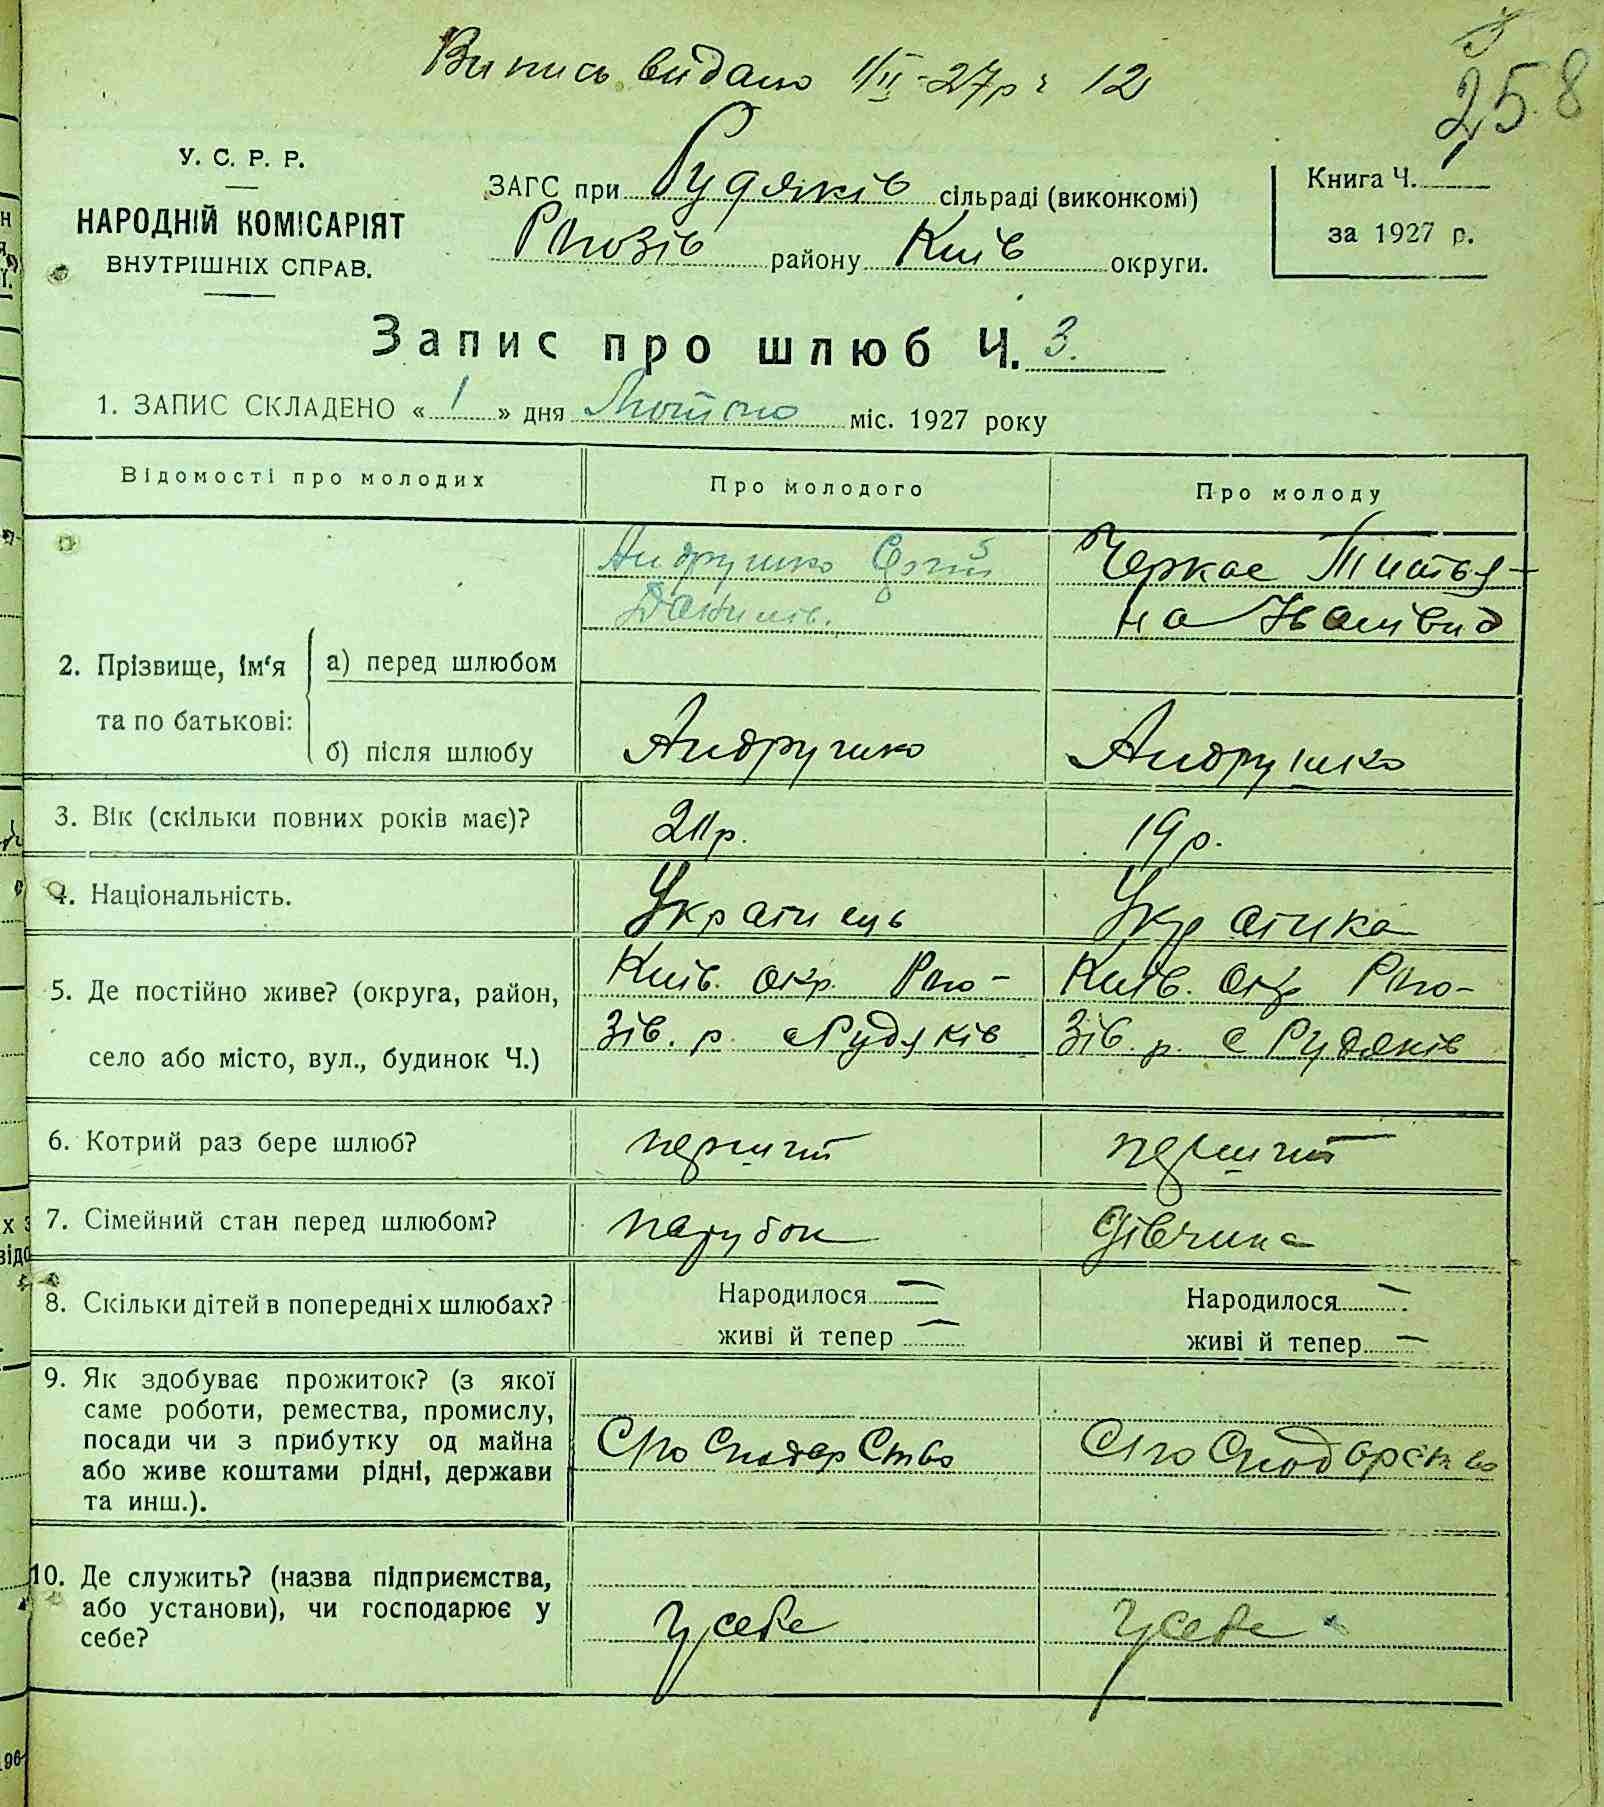 Випись видано 1/II-27р ч 12
258
У. С. Р. Р.
НАРОДНІЙ КОМІСАРІЯТ
ВНУТРІШНІХ СПРАВ.
ЗАГС при Рудяків сільраді (виконкомі)
Ржозів району Київ округи.
Книга Ч.
за 1927 р.
Запис про шлюб Ч. 3.
1. ЗАПИС СКЛАДЕНО « 1 » дня Лютого міс. 1927 року
Відомості про молодих Про молодого Про молоду
2. Прізвище, ім'я та по батькові:
а) перед шлюбом
Андрушко Данилів.
Черкас Тиатья-
на Іванівна
б) після шлюбу Андрушко Андрушко
3. Вік (скільки повних років має)? 21р. 19р.
4. Національність. Українець Українка
5. Де постійно живе? (округа, район,
село або місто, вул., будинок Ч.)
Київ. окр. Ржо-
зів. р. с Рудяків
Київ. окр Ржо-
зів. р. с Рудяків
6. Котрий раз бере шлюб? перший перший
7. Сімейний стан перед шлюбом? парубок дівчина
8. Скільки дітей в попередніх шлюбах? Народилося — Народилося —
живі й тепер — живі й тепер —
9. Як здобуває прожиток? (з якої
саме роботи, ремества, промислу,
посади чи з прибутку од майна
або живе коштами рідні, держави
та инш.).
Сго Сподарство
Сго Сподарство
10. Де служить? (назва підприємства,
або установи), чи господарює у
себе?
у себе у себе